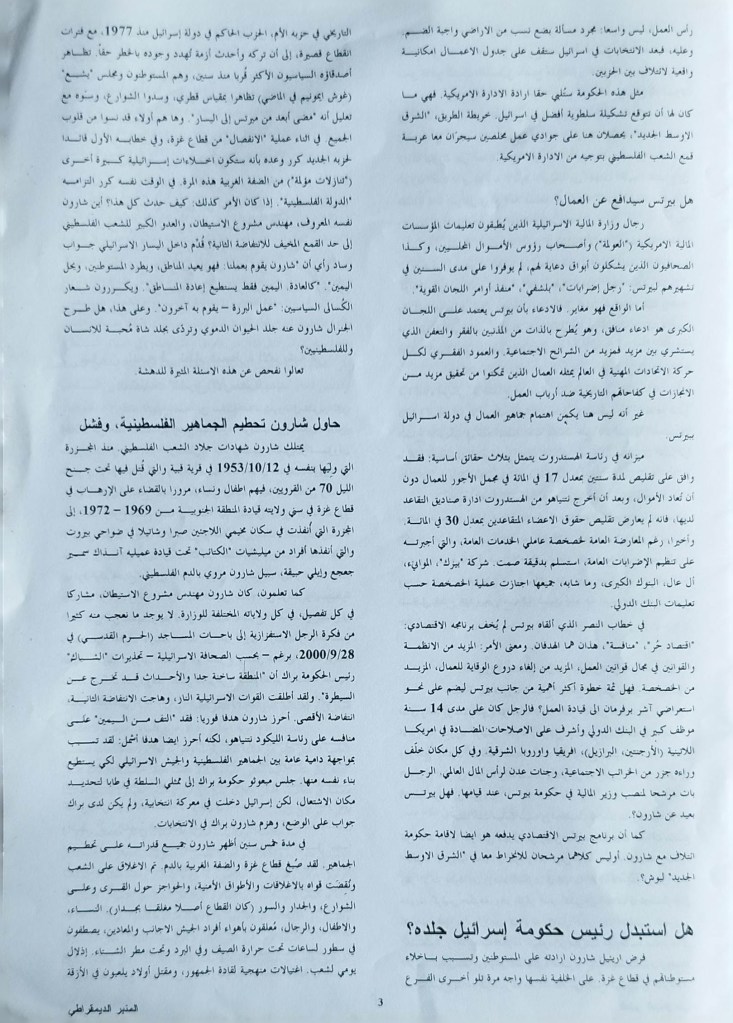 رأس العمل، ليس واسعا: مجرد مسألة بضع نسب من الاراضي واجبة الضم.
وعليه، فبعد الانتخابات في اسرائيل ستقف على جدول الاعمال امكانية
واقعية لائتلاف بين الحزبين.
مثل هذه الحكومة ستُلبي حقا ارادة الادارة الامريكية. فهي ما
كان لها أن تتوقع تشكيلة سلطوية أفضل في اسرائيل. خريطة الطريق، "الشرق
الاوسط الجديد"، يحصلان هنا على جوادي عمل مخلصين سيجرّان معا عربة
قمع الشعب الفلسطيني بتوجيه من الادارة الامريكية.
هل بيرتس سيدافع عن العمال؟
رجال وزارة المالية الاسرائيلية الذين يُطبقون تعليمات المؤسسات
المالية الامريكية ("العولمة") وأصحاب رؤوس الأموال المحليين، وكذا
الصحافيون الذين يشكلون أبواق دعاية لهم، لم يوفروا على مدى السنين في
تشهيرهم لبيرتس: "رجل إضرابات"، "بلشفي"، "منفذ أوامر اللجان القوية".
أما الواقع فهو مغاير. فالادعاء بأن بيرتس يعتمد على اللجان
الكبرى هو ادعاء منافق، وهو يُطرح بالذات من المذنبين بالفقر والتعفن الذي
يستشري بين مزيد فمزيد من الشرائح الاجتماعية. والعمود الفقري لكل
حركة الاتحادات المهنية في العالم يمثله العمال الذين تمكنوا من تحقيق مزيد من
الانجازات في كفاحاتهم التاريخية ضد أرباب العمل.
غير أنه ليس هنا يكمن اهتمام جماهير العمال في دولة اسرائيل
ببيرتس.
ميزانه في رئاسة الهستدروت يتمثل بثلاث حقائق أساسية: فقد
وافق على تقليص لمدة سنتين بمعدل 17 في المائة في مجمل الأجور للعمال دون
أن تُعاد الأموال، وبعد أن أخرج نتنياهو من الهستدروت ادارة صناديق التقاعد
لديها، فانه لم يعارض تقليص حقوق الاعضاء المتقاعدين بمعدل 30 في المائة.
وأخيرا، رغم المعارضة العامة لخصخصة عاملي الخدمات العامة، والتي أجبرته
على تنظيم الإضرابات العامة، استسلم بدقيقة صمت. شركة "بيزك"، الموانيء،
أل عال، البنوك الكبرى، وما شابه، جميعها اجتازت عملية الخصخصة حسب
تعليمات البنك الدولي.
في خطاب النصر الذي ألقاه بيرتس لم يُخف برنامجه الاقتصادي:
"اقتصاد حُر"، "منافسة"، هذان هما الهدفان. ومعنى الأمر: المزيد من الانظمة
والقوانين في مجال قوانين العمل، المزيد من إلغاء دروع الوقاية للعمال، المزيد
من الخصخصة. فهل ثمة خطوة أكثر أهمية من جانب بيرتس ليضم على نحو
استعراضي آشر برفرمان الى قيادة العمل؟ فالرجل كان على مدى 14 سنة
موظف كبير في البنك الدولي وأشرف على الاصلاحات المضادة في امريكا
اللاتينية (الأرجنتين، البرازيل)، افريقيا واوروبا الشرقية. وفي كل مكان خلّف
وراءه جزر من الخرائب الاجتماعية، وجنات عدن لرأس المال العالمي. الرجل
بات مرشحا لمنصب وزير المالية في حكومة بيرتس، عند قيامها. فهل بيرتس
بعيد عن شارون؟.
كما أن برنامج بيرتس الاقتصادي يدفعه هو ايضا لاقامة حكومة
ائتلاف مع شارون. أوليس كلاهما مرشحان للانخراط معا في "الشرق الاوسط
الجديد" لبوش؟.
هل استبدل رئيس حكومة إسرائيل جلده؟
فرض اريئيل شارون ارادته على المستوطنين وتسبب باخلاء
مستوطناتهم في قطاع غزة. على الخلفية نفسها واجه مرة تلو أخرى الفرع
التاريخي في حزبه الأم، الحزب الحاكم في دولة إسرائيل منذ 1977، مع فترات
انقطاع قصيرة، إلى أن تركه وأحدث أزمة تُهدد وجوده بالخطر حقاً. تظاهر
أصدقاؤه السياسيون الأكثر قُربا منذ سنين، وهم المستوطنون ومجلس "يشع"
(غوش ايمونيم في الماضي) تظاهرا بمقياس قطري، وسدوا الشوارع، وسوه مع
تعليل أنه "مضى أبعد من ميرتس إلى اليسار". وها هم أولاء قد نسوا من قلوب
الجميع. في اثناء عملية "الانفصال" من قطاع غزة، وفي خطابه الأول قائدا
لحزبه الجديد كرر وعده بأنه ستكون اخلاءات إسرائيلية كبيرة أخرى
("تنازلات مؤلمة") من الضفة الغربية هذه المرة. في الوقت نفسه كرر التزامه
"الدولة الفلسطينية". إذا كان الأمر كذلك: كيف حدث كل هذا؟ أين شارون
نفسه المعروف، مهندس مشروع الاستيطان، والعدو الكبير للشعب الفلسطيني
إلى حد القمع المخيف للانتفاضة الثانية؟ قُدّم داخل اليسار الاسرائيلي جواب
وساد رأي أن "شارون يقوم بعملنا: فهو يعيد المناطق، ويطرد المستوطنين، ويحل
اليمين". "كالعادة. اليمين فقط يستطيع إعادة المناطق". ويكررون شعار
الكُسالى السياسيين: "عمل البررة – يقوم به آخرون". وعلى هذا، هل طرح
الجنرال شارون عنه جلد الحيوان الدموي وتردّى بجلد شاة مُحبة للانسان
وللفلسطينيين؟
تعالوا نفحص عن هذه الاسئلة المثيرة للدهشة.
حاول شارون تحطيم الجماهير الفلسطينية، وفشل
يمتلك شارون شهادات جلاد الشعب الفلسطيني. منذ المجزرة
التي وليها بنفسه في 1953/10/12 في قرية قبية والتي قُتل فيها تحت جنح
الليل 70 من القرويين، فيهم اطفال ونساء، مرورا بالقضاء على الإرهاب في
قطاع غزة في سني ولايته قيادة المنطقة الجنوبية من 1969 – 1972، إلى
المجزرة التي أُنفذت في سكان مخيمي اللاجئين صبرا وشاتيلا في ضواحي بيروت
والتي أنفذها أفراد من ميليشيات "الكتائب" تحت قيادة عميليه آنذاك سمير
جعجع وإيلي حبيقة، سبيل شارون مروي بالدم الفلسطيني.
كما تعلمون، كان شارون مهندس مشروع الاستيطان، مشاركا
في كل تفصيل، في كل ولاياته المختلفة للوزارة. لا يوجد ما نعجب منه كثيرا
من فكرة الرجل الاستفزازية إلى باحات المساجد (الحرم القدسي) في
2000/9/28، برغم – بحسب الصحافة الاسرائيلية – تحذيرات "الشاباك"
رئيس الحكومة براك أن "المنطقة ساخنة جدا والأحداث قد تخرج عن
السيطرة". ولقد أطلقت القوات الاسرائيلية النار، وهاجت الانتفاضة الثانية،
انتفاضة الأقصى. أحرز شارون هدفا فوريا: فقد "التف من اليمين" على
منافسه على رئاسة الليكود نتنياهو، لكنه أحرز ايضا هدفا أشمل: لقد تسبب
بمواجهة دامية عامة بين الجماهير الفلسطينية والجيش الاسرائيلي لكي يستطيع
بناء نفسه منها. جلس مبعوثو حكومة براك إلى ممثلي السلطة في طابا لتحديد
مكان الاشتعال، لكن إسرائيل دخلت في معركة انتخابية، ولم يكن لدى براك
جواب على الوضع، وهزم شارون براك في الانتخابات.
في مدة خمس سنين أظهر شارون جميع قدراته على تحطيم
الجماهير. لقد صُبغ قطاع غزة والضفة الغربية بالدم. تم الاغلاق على الشعب
ونُقضت قواه بالاغلاقات والأطواق الأمنية، والحواجز حول القرى وعلى
الشوارع، والجدار والسور (كان القطاع أصلا مغلقا بجدار). النساء،
والاطفال، والرجال، مُعلقون بأهواء أفراد الجيش الاجانب والمعادين، يصطفون
في سطور لساعات تحت حرارة الصيف وفي البرد وتحت مطر الشتاء. إذلال
يومي لشعب. اغتيالات منهجية لقادة الجمهور، ومقتل أولاد يلعبون في الأزقة
3
المنبر الديمقراطي